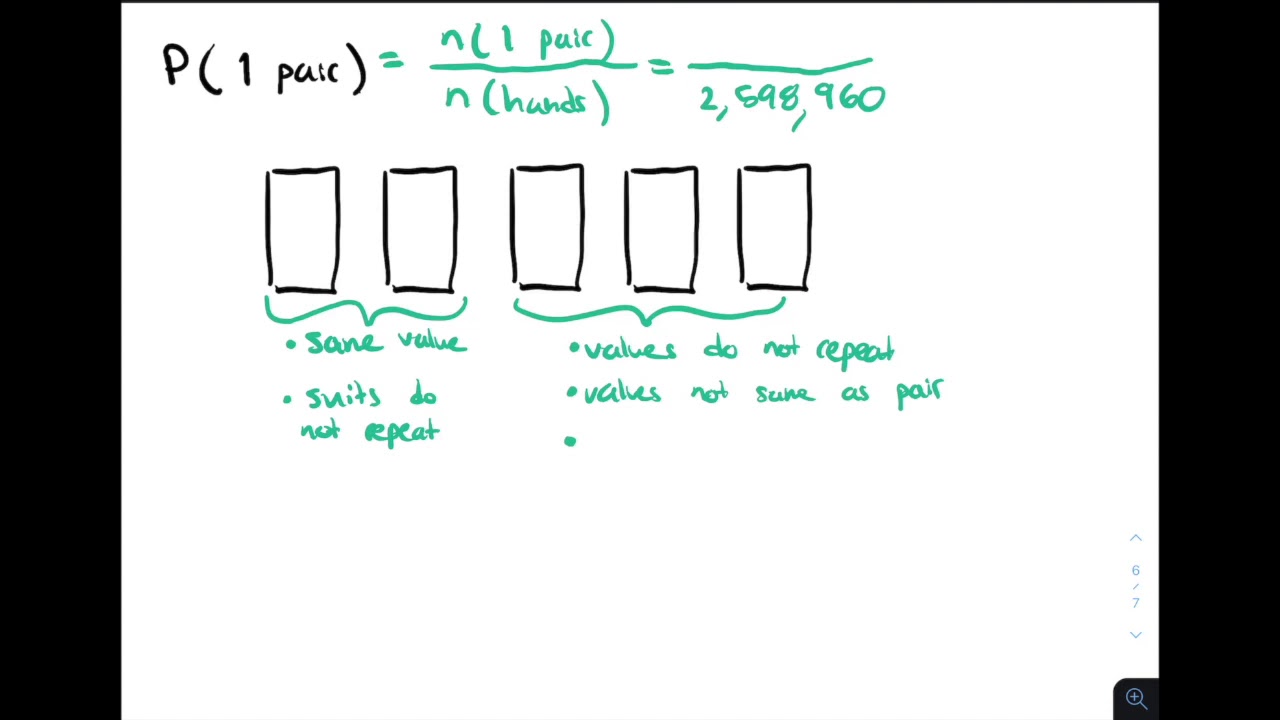 P(1 pair) = n(1 pair) / n(hands) = / 2,598,960
• same value
• suits do
not repeat
• values do not repeat
• values not same as pair
•
6
/
7